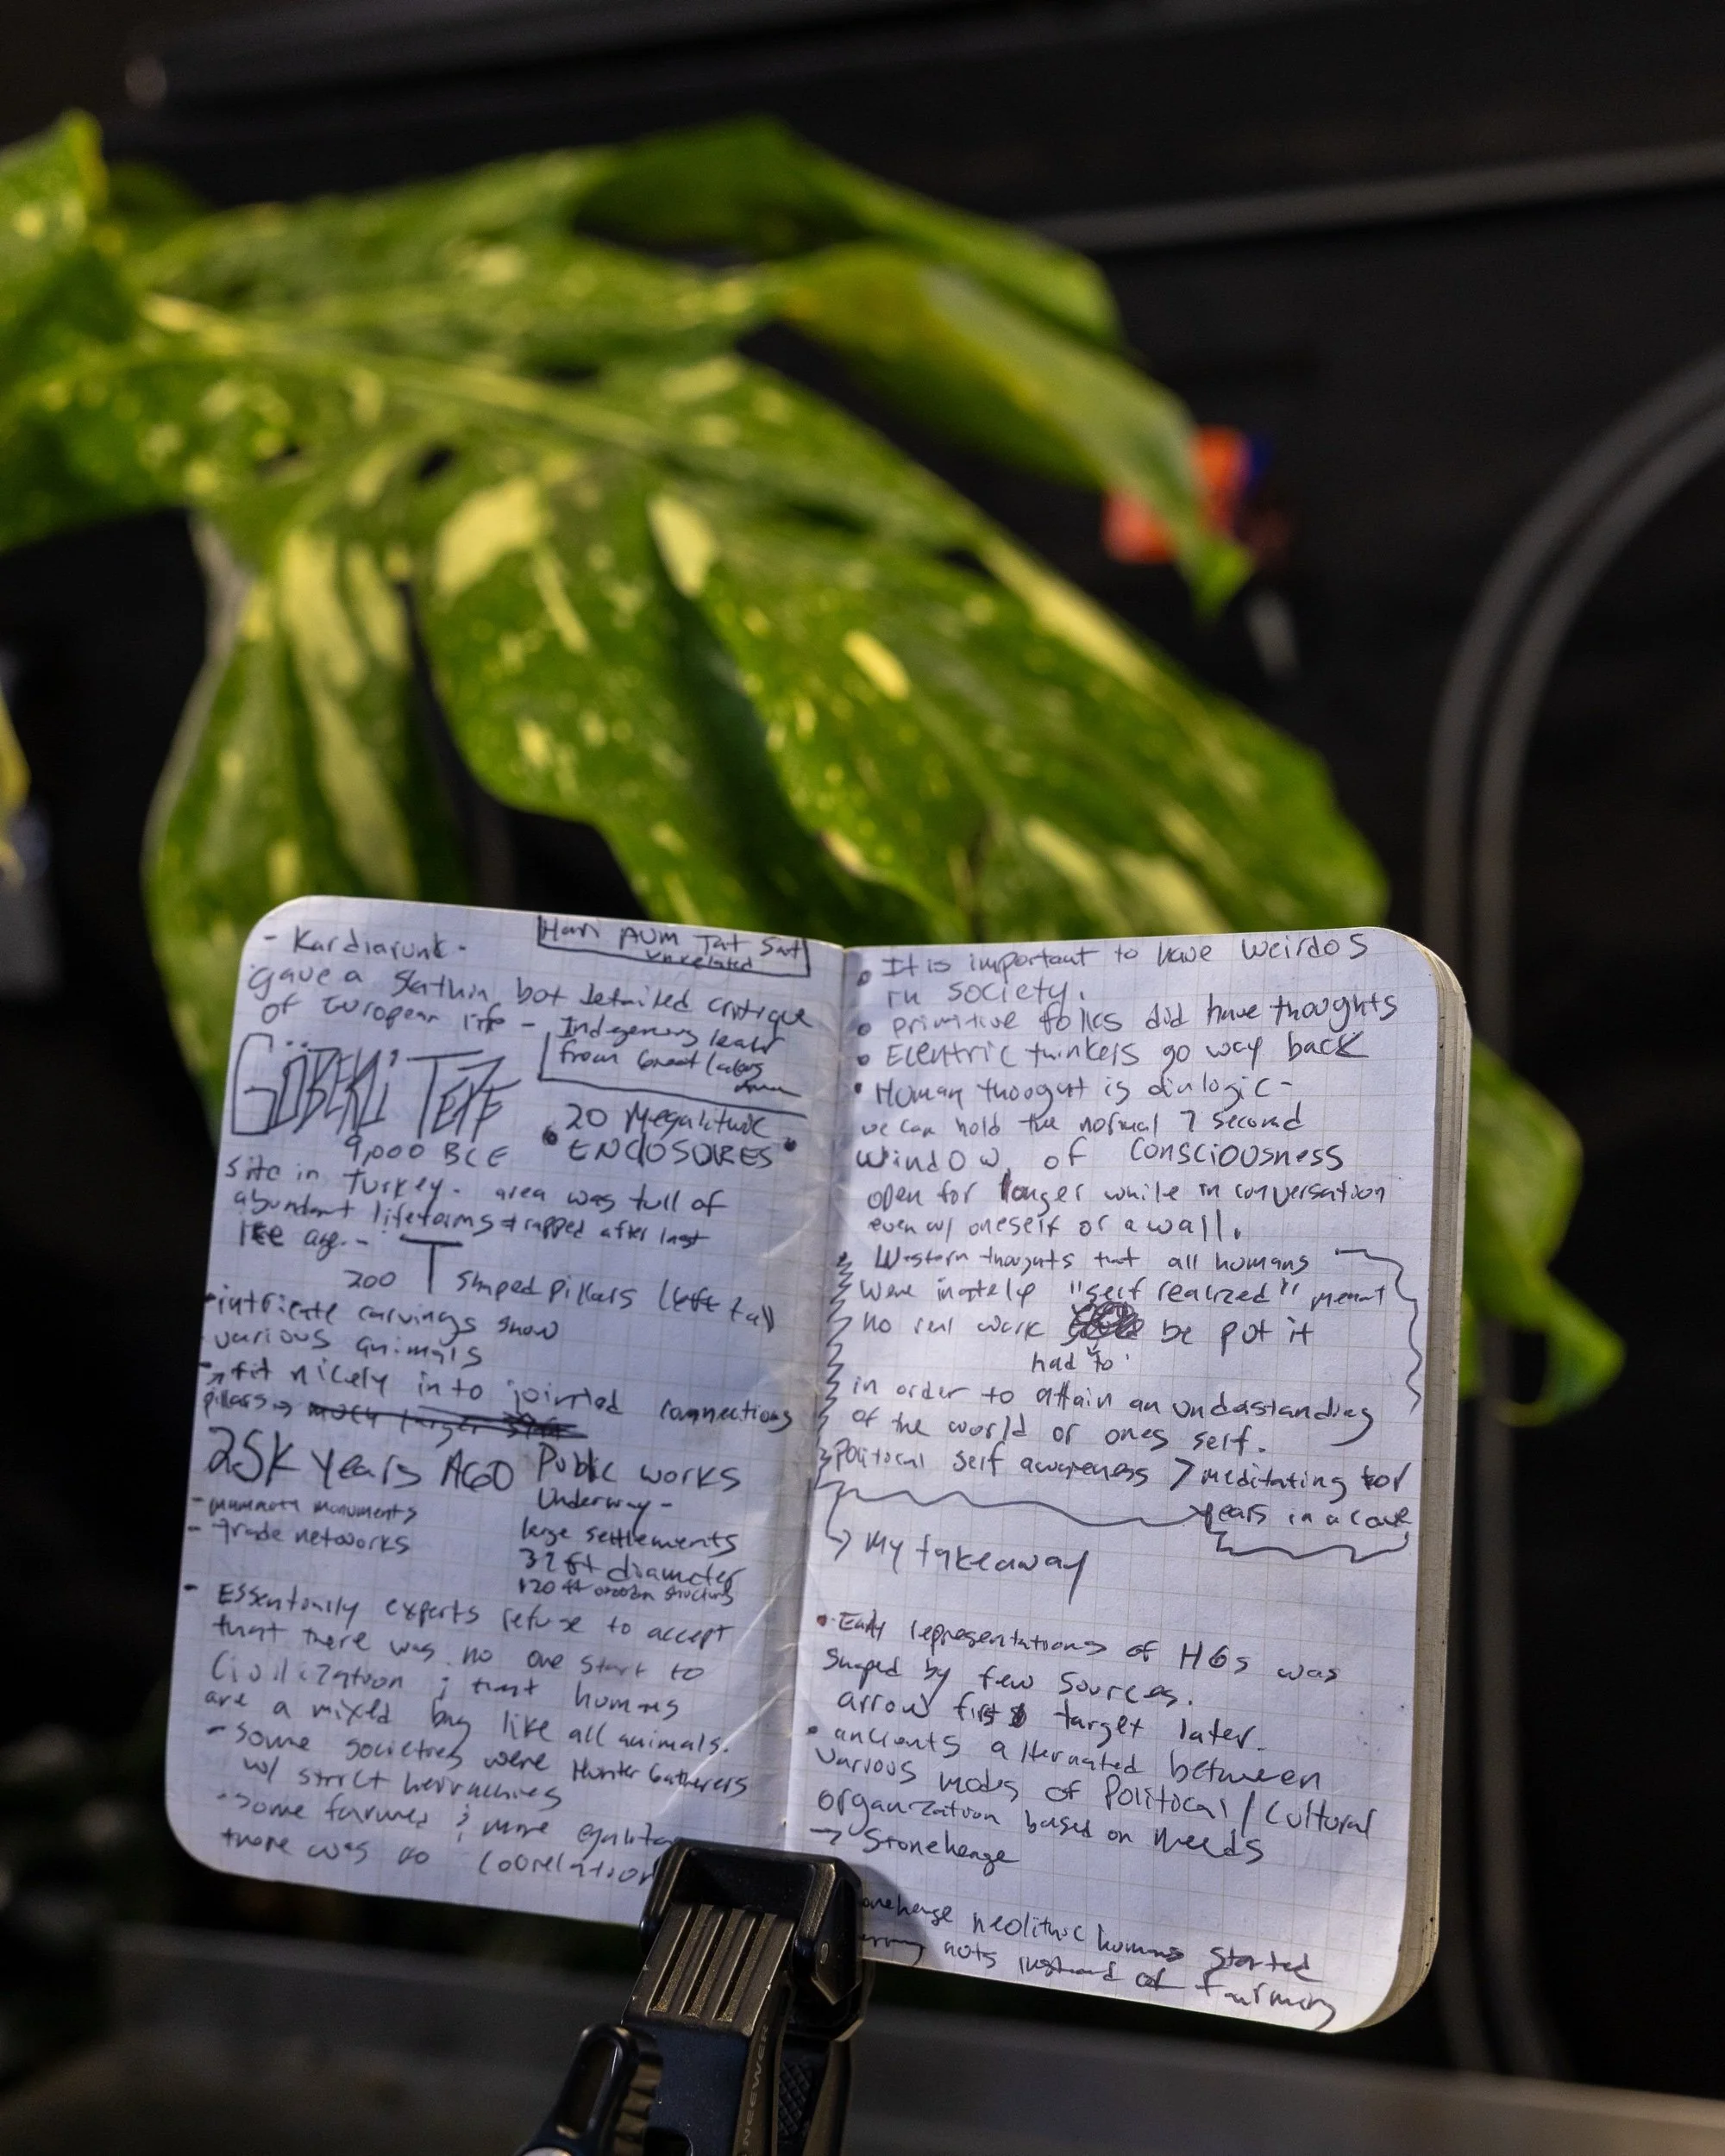 - Kardiarunk -
Hari AUM Tat Sat
unrelated
gave a Scathin bot detailed critique
of European life -
Indegenous leadr
from Great Lakes
GÖBEKLI TEPE
9,000 BCE
• 20 Megalithic
ENCLOSURES •
Site in Turkey. area was full of
abundant lifeforms trapped after last
Ice age. -
200 T shaped pillars tall
- intricate carvings show
various animals
- fit nicely into jointed connections
pillars → much larger
25K Years AGO Public works
Underway -
- mammoth monuments
- Trade networks
large settlements
32 ft diameter
120 ft wooden structures
- Essentially experts refuse to accept
that there was no one start to
Civilization ; that humans
are a mixed bag like all animals.
- Some societies were Hunter Gatherers
w/ strict heirachies
- Some farmed & more
there was no
• It is important to have Weirdos
in society.
• primitive folks did have thoughts
• Eccentric thinkers go way back
• Human thought is dialogic -
we can hold the normal 7 second
window of consciousness
open for longer while in conversation
even w/ oneself or a wall.
Western thoughts that all humans
were inately "self realized" meant
no real work be put it
had to
in order to attain an undastanding
of the world or ones self.
Political self awareness > meditating for
years in a cave
→ My takeaway
• Early representations of HGs was
shaped by few sources.
arrow first target later.
• ancients alternated between
various modes of Political / Cultural
organization based on needs
→ Stonehenge
neolithic humans started
nuts instead of farming
NEEWER